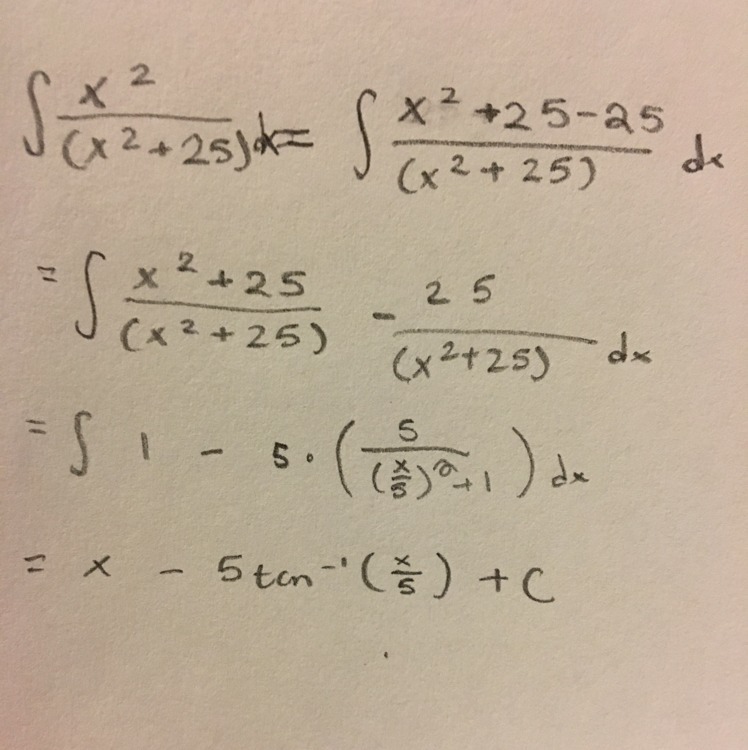 ∫ x²/(x²+25) dx = ∫ (x²+25-25)/(x²+25) dx
= ∫ (x²+25)/(x²+25) - 25/(x²+25) dx
= ∫ 1 - 5·(5/((x/5)²+1)) dx
= x - 5tan⁻¹(x/5) + C